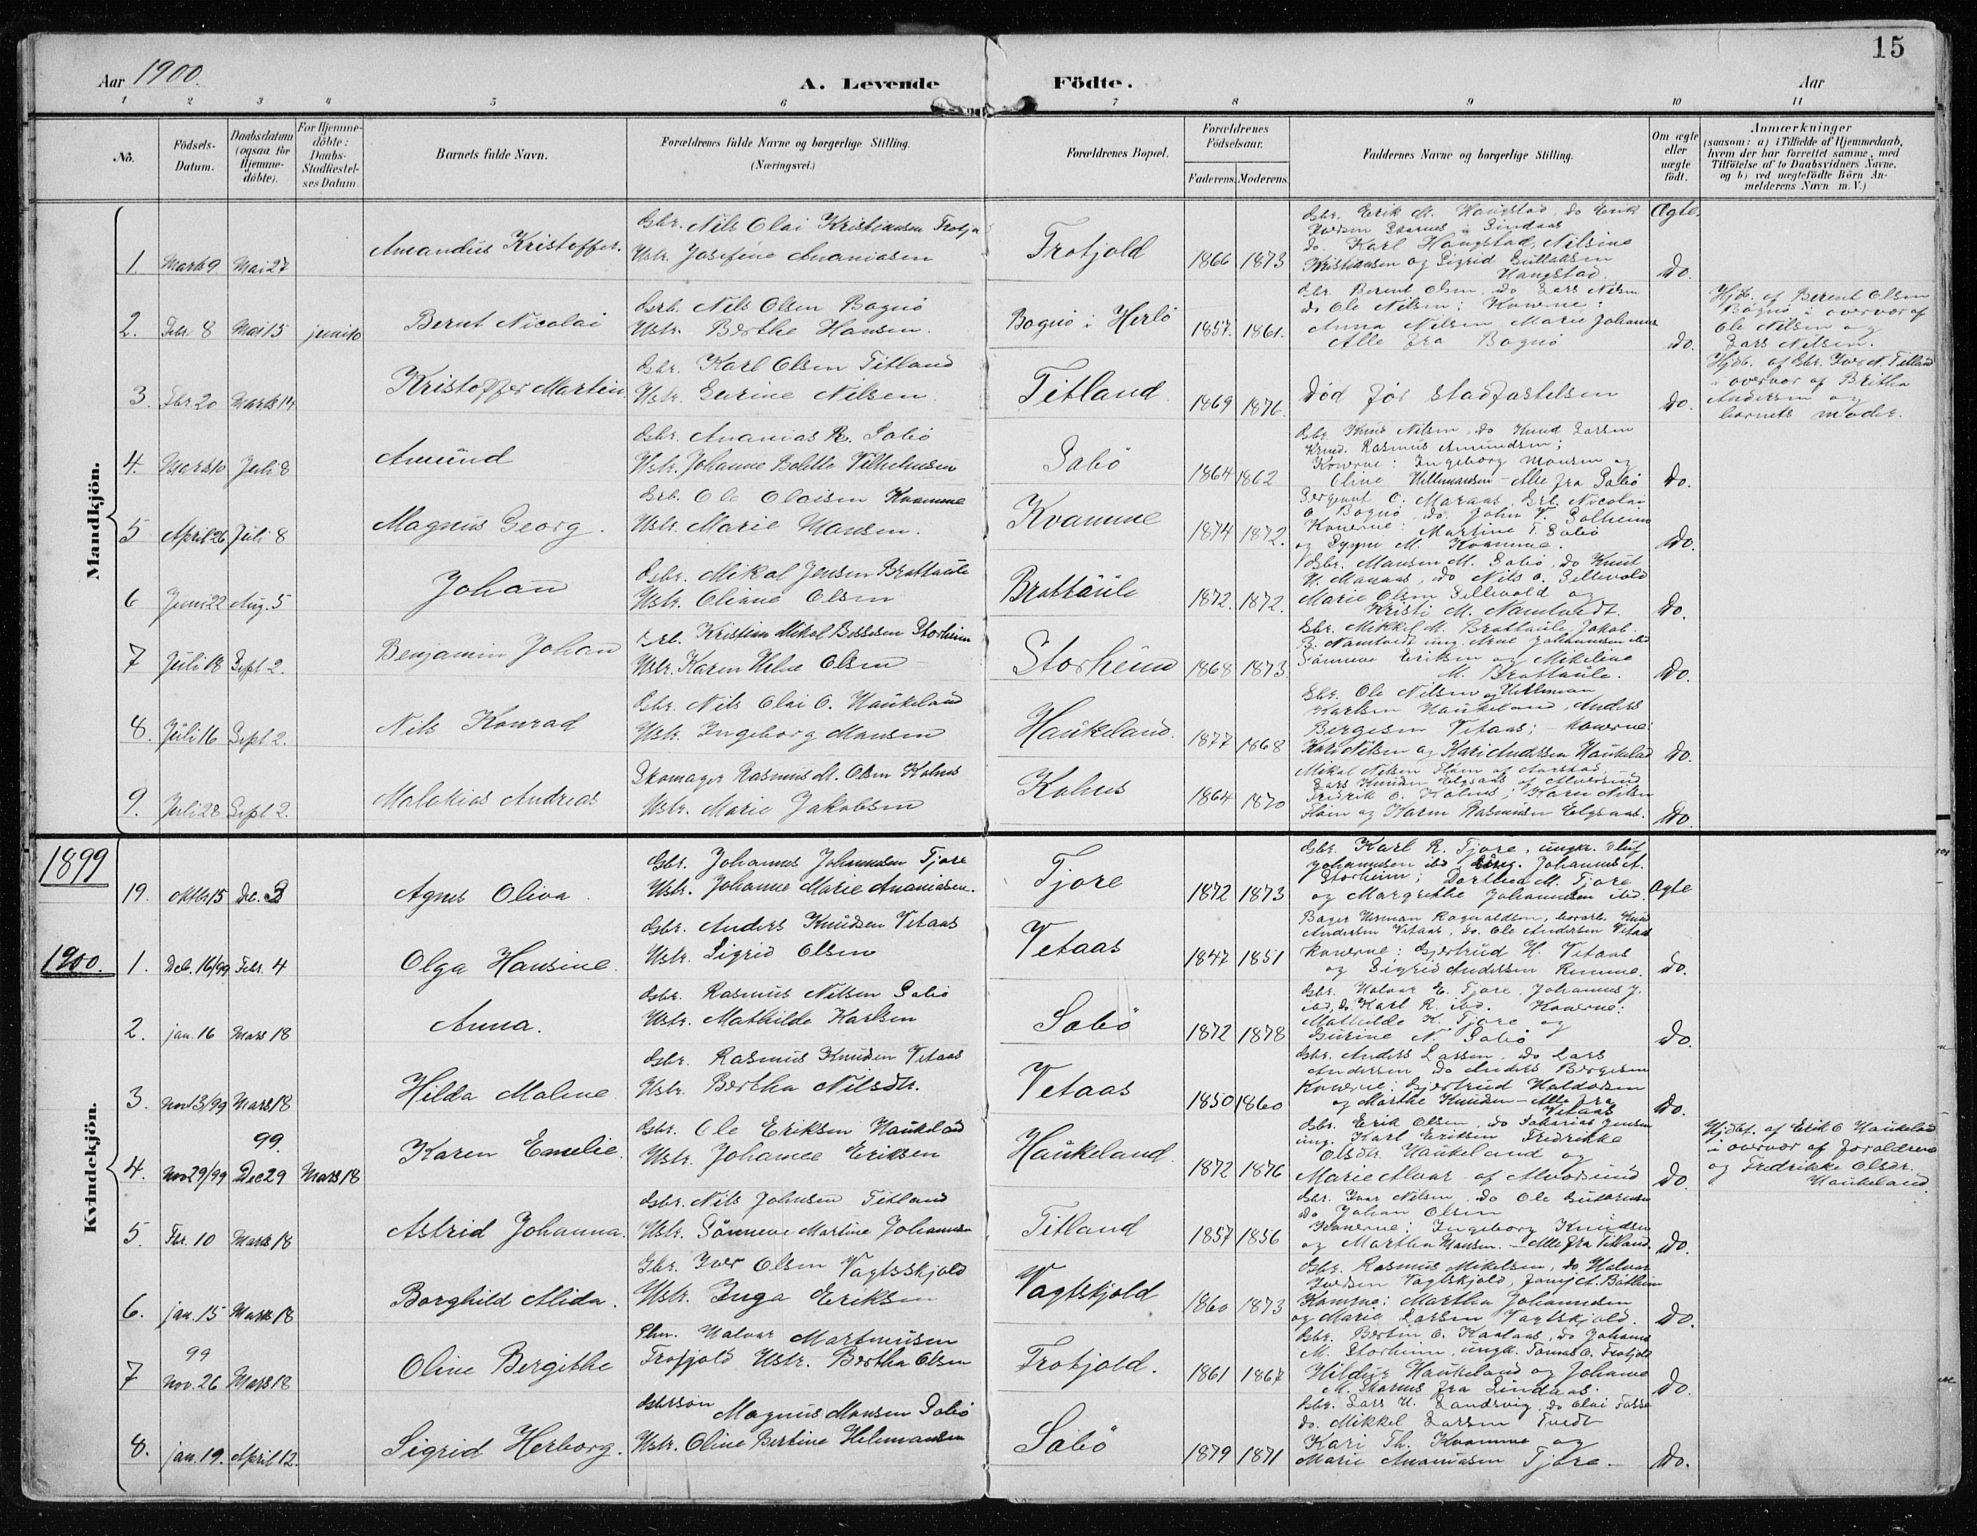 15
Aar 1900.
A. Levende Födte.
Aar
1 2 3 4 5 6 7 8 9 10 11
No.
Födsels-Datum.
Daabsdatum (ogsaa for Hjemme-döbte).
For Hjemme-döbte: Daabs-Stadfæstel-ses Datum.
Barnets fulde Navn.
Forældrenes fulde Navne og borgerlige Stilling. (Næringsvei.)
Forældrenes Bopæl.
Forældrenes Födselsaar.
Faderens. Moderens.
Faddernes Navne og borgerlige Stilling.
Om ægte eller uægte födt.
Anmærkninger
(saasom: a) i Tilfælde af Hjemmedaab,
hvem der har forrettet samme, med
Tilföielse af to Daabsvidners Navne.
og b) ved uægtefödte Börn An-
melderens Navn m. V.)
Mandkjön.
1 Marts 9 Mai 27 Amandus Kristoffer.
Gbr. Nils Olai Kristiansen
Hstr. Josefine Ananiasen
Trotjold 1866 1873
Gbr. Erik M. Haugstad, do Erik
do. Karl Haugstad, Nilsine
Kristiansen og Sigrid
Haugstad.
Ægte
Do.
2. Febr. 8 Mai 15 juni 10 Bernt Nicolai
Gbr. Nils Olsen Bognö
Hstr. Berthe Hansen.
Bognö i Herlö 1857. 1861.
Gbr. Berent Olsen, do Lars Nilsen
do Ole Nilsen; Konerne:
Anna Nilsen Marie Johannes
Alle fra Bognö
Do.
Hjdb. af Berent Olsen
Bognö i overvær af
Ole Nilsen og
Lars Nilsen.
3. Fbr 20 Marts 14 Kristoffer Martin
Gbr. Karl Olsen Titland
Hstr. Gurine Nilsen.
Titland. 1869 1876.
Död för stadfæstelsen
Do.
Hjdb. af Gbr. Iver N. Titland
i overvær af Britha
Andersen og
barnets moder.
4. Marts 10 Juli 8 Amund
Gbr. Ananias R. Sabö
Hstr. Johanne Bolette Vilhelmsen
Sabö 1864 1862
Gbr. Knud Nilsen, do Knud Larsen
Rasmus Amundsen;
Konerne: Ingeborg Monsen og
Oline Hillemansen - Alle fra Sabö
Do.
5 April 26 Juli 8 Magnus Georg.
Gbr. Ole Olaisen Kvamme
Hstr. Marie Hansen.
Kvamme 1874 1872.
Sergeant O. Maraas, Gbr. Nicolai
O. Bognö, do. John V. Solheim
Konerne: Martine T. Sabö
og M. Kvamme.
Do.
6 Juni 22 Aug. 5 Johan
Gbr. Mikal Jensen Brattaule
Hstr. Oliane Olsen
Brattaule 1872. 1872.
Gbr. Mansen M. Sabö, do Knut
N. Maraas, do Nils O. Sellevold
Marie Olsen Sellevold og
Kristi M. Namtvedt.
Do.
7 Juli 18 Sept 2. Benjamin Johan
Gbr. Kristian Mikal Storheim
Hstr. Karen Helne Olsen
Storheim 1868 1873
Gbr. Mikkel M. Brattaule Jakob
R. Namtvedt ung. Johannesen ibd
Sönneve Eriksen og Mikeline
M. Brattaule.
Do.
8. Juli 16 Sept 2. Nils Konrad
Gbr. Nils Olai O. Haukeland
Hstr. Ingeborg Monsen
Haukeland. 1877 1868
Gbr. Ole Nilsen og Hilleman
Karlsen Haukeland, Anders
Börgesen Vetaas; Konerne:
Kari Nilsen og Kari Andersen Haukeland
Do.
9. Juli 28 Sept 2. Malakias Andreas
Skomager Rasmus M. Olsen Kolnes
Hstr. Marie Jakobsen
Kolnes 1864 1870
Mikal Nilsen
Lars Knudsen Elgsaas af Alversund
Fredrik O. Kolnes; Karen Nilsen
og Karen Rasmusen Elgsaas.
Do.
Kvindekjön.
1899
19. Oktbr 15 Dec. 3 Agnes Oliva.
Gbr. Johannes Johannesen Tjore
Hstr. Johanne Marie Ananiasen.
Tjore 1872 1873
Gbr. Karl R. Tjore, ungk. Elias
Johannesen ibd ung. Johannes A.
Storheim; Dorthea M. Tjore
og Margrethe Johannesen ibd.
Ægte
1900.
1. Dec. 16/99 Febr. 4 Olga Hansine.
Gbr. Anders Knudsen Vetaas
Hstr. Sigrid Olsen
Vetaas 1847 1851
Bager Herman Ragnvaldsen, Knud
Andersen Vetaas, do. Ole Andersen Vetaas
Konerne: Gjertrud H. Vetaas
og Sigrid Andersen
Do.
2. jan. 16 Mars 18 Anna.
Gbr. Rasmus Nilsen Sabö
Hstr. Mathilde Karlsen
Sabö 1872 1878
Gbr. Halvar E. Tjore, Johannes J.
ibd, do Karl R. ibd. Konerne:
Mathilde K. Tjore og
Gurine N. Sabö
Do.
3. Nov 13/99 Mars 18 Hilda Malene
Gbr. Rasmus Knudsen Vetaas
Hstr. Bertha Nilsdtr.
Vetaas 1850 1860
Gbr. Anders Larsen, do Lars
Andersen do Anders Börgesen
Konerne: Gjertrud Haldorsen
og Marthe Knudsen - Alle fra
Vetaas
Do.
4. Nov 29/99 99. Dec 29 Mars 18 Karen Emelie.
Gbr. Ole Eriksen Haukeland
Hstr. Johanne Eriksen
Haukeland. 1872 1876
Gbr. Erik Olsen, do Sakarias Jensen
ung. Karl Eriksen Fredrikke
Olsdtr. Haukeland og
Marie Alvar af Alversund
Do.
Hjdbt. af Erik O Haukeland
i overvær af forældrene
og Fredrikke Olsdr.
Haukeland.
5. Fbr. 10 Marts 18 Astrid Johanna.
Gbr. Nils Johnsen Titland
Hstr. Sönneve Martine Johannesen
Titland 1857 1856
Gbr. Iver Nilsen, do Ole
do Johan Olsen
Konerne: Ingeborg Knudsen
og Martha Monsen. - Alle fra Titland.
Do.
6. jan. 15 Marts 18 Borghild Alida.
Gbr. Iver Olsen Vagtskjold
Hstr. Inga Eriksen
Vagtskjold 1860 1873
Gbr. Rasmus Mikelsen, do Halvar
Iversen Vagtskjold,
Konerne: Martha Johannesen
og Marie Larsen Vagtskjold.
Do.
7 99 nov. 26 Mars 18 Oline Bergithe
Halvar Martinusen
Trotjold Hstr. Bertha Olsen
Trotjold. 1861 1867
Gbr. Berten O. Kaalaas, do Johannes
M. Storheim, ungk. Tomas O. Trotjold
Hildur Haukeland og Johanne
M. Skarnes fra Lindaas.
Do.
8. jan. 19. April 12. Sigrid Herborg.
Gbrsön Magnus Monsen Sabö
Hstr. Oline Bertine Hilmansen
Sabö 1879 1871
Gbr. Lars H. Landsvig, do Olai Fosse
do. Mikkel Larsen Tvedt
Kari Th. Kvamme og
Marie Ananiasen Tjore.
Do.